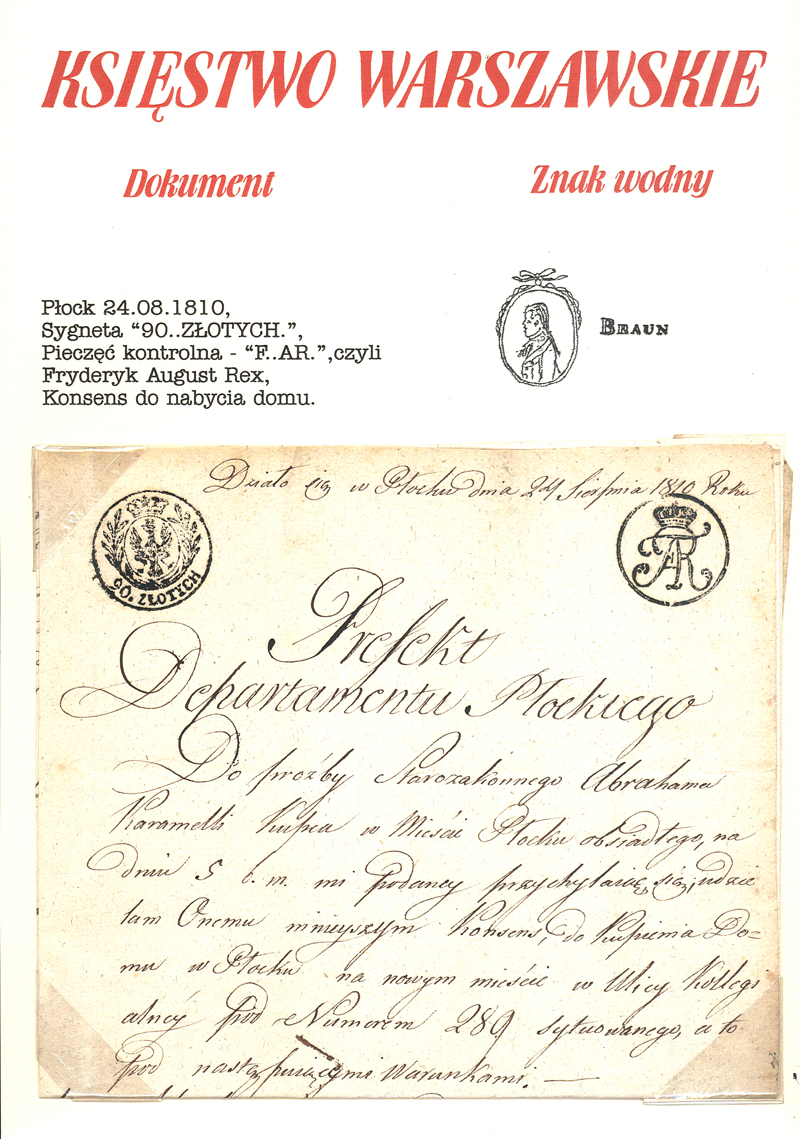 KSIĘSTWO WARSZAWSKIE
Dokument
Znak wodny
Płock 24.08.1810,
Sygneta “90..ZŁOTYCH.”,
Pieczęć kontrolna - “F..AR.”,czyli
Fryderyk August Rex,
Konsens do nabycia domu.
BRAUN
Działo się w Płocku dnia 24 Sierpnia 1810 Roku
90. ZŁOTYCH
FAR
Prefekt
Departamentu Płockiego
Do proźby Starozakonnego Abrahama
Karamelli Kupca w Mieście Płocku obsiadłego, na
dniu 5 b. m. mi podaney przychylaiąc się, udzie
lam Onemu ninieyszym Konsens, do Kupienia Do=
mu w Płocku na nowym mieście w Ulicy Kollegi
alnéy pod Numerem 289 sytuowanego, a to
pod następuiącymi Warunkami. —